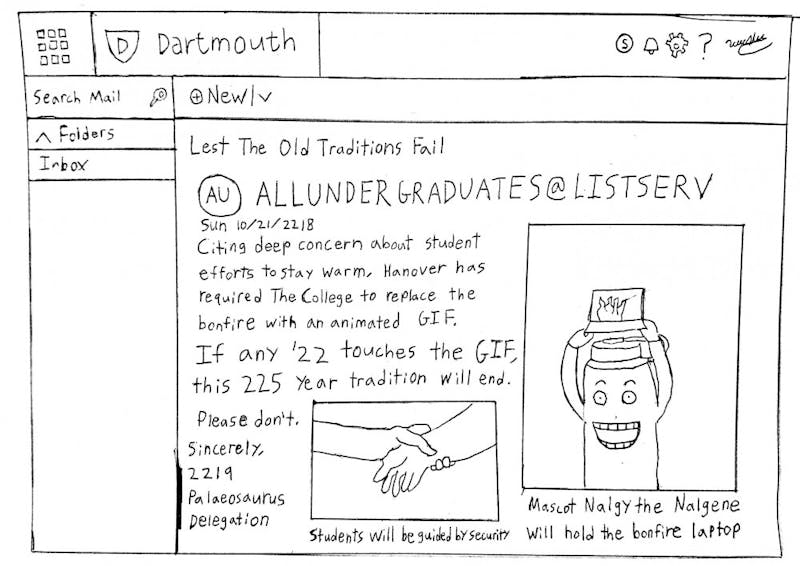 D Dartmouth
S ?
Search Mail
New
Folders
Inbox
Lest The Old Traditions Fail
AU ALLUNDERGRADUATES@LISTSERV
Sun 10/21/2218
Citing deep concern about student
efforts to stay warm, Hanover has
required The College to replace the
bonfire with an animated GIF.
If any '22 touches the GIF,
this 225 year tradition will end.
Please don't.
Sincerely,
2219
Palaeosaurus
Delegation
Students will be guided by security
Mascot Nalgy the Nalgene
will hold the bonfire laptop